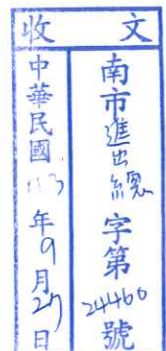 收文
南市進出總字第24460號
中華民國113年9月27日